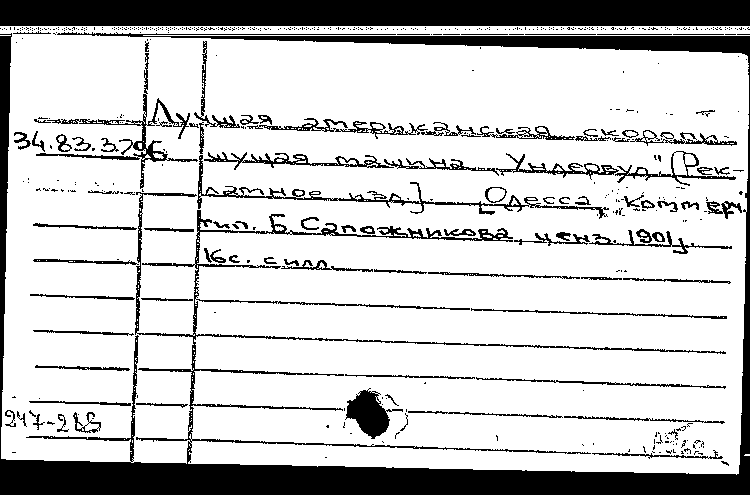 Лучшая американская скоропи-
34.83.3296 шущая машина „Ундервуд" [Рек-
ламное изд.]. [Одесса, „Коммерч."
тип. Б. Сапожникова, ценз. 1901].
16с. с илл.
247-285